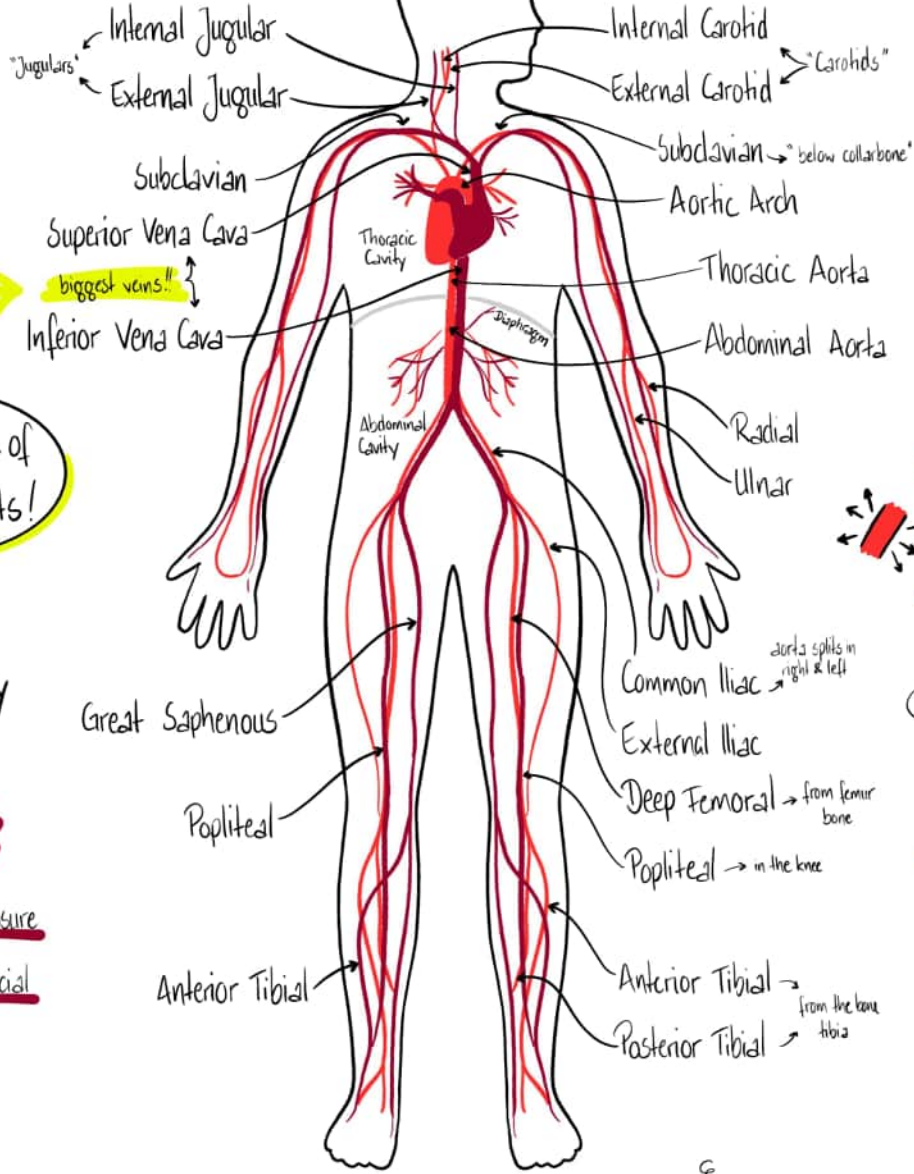 Internal Jugular
"Jugulars"
External Jugular
Subclavian
Superior Vena Cava
biggest veins!!
Inferior Vena Cava
of
ts!
Great Saphenous
Popliteal
sure
cial
Anterior Tibial
Thoracic
Cavity
Diaphragm
Abdominal
Cavity
Internal Carotid
"Carotids"
External Carotid
Subclavian → "below collarbone"
Aortic Arch
Thoracic Aorta
Abdominal Aorta
Radial
Ulnar
Common Iliac → aorta splits in
right & left
External Iliac
Deep Femoral → from femur
bone
Popliteal → in the knee
Anterior Tibial
from the bone
tibia
Posterior Tibial